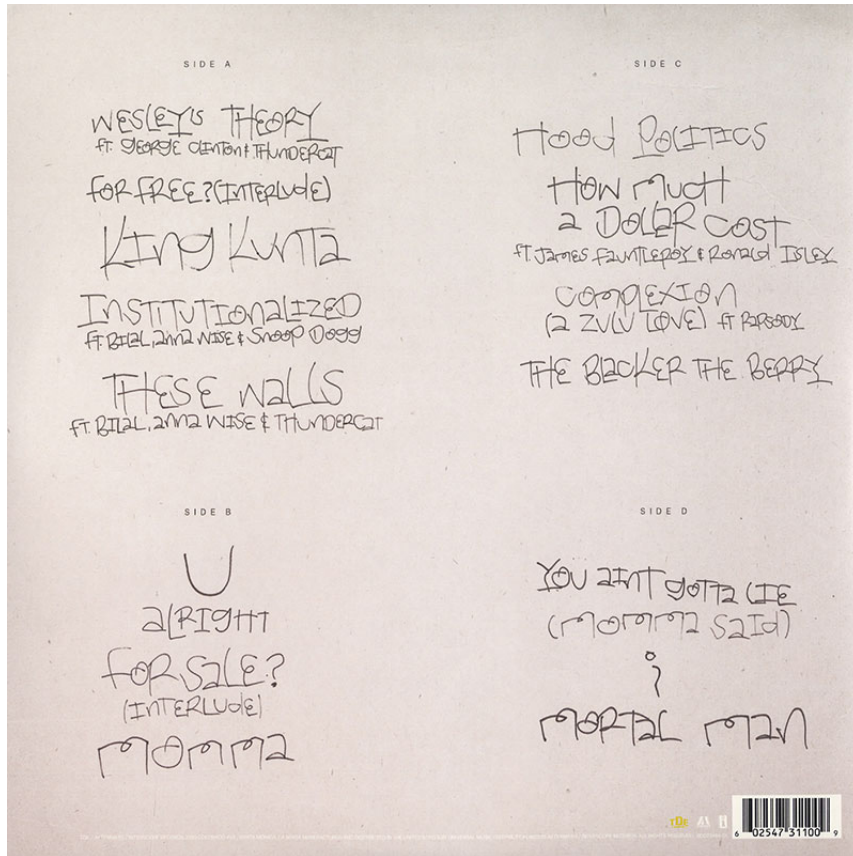 SIDE A
WESLEY'S THEORY
FT. GEORGE CLINTON & THUNDERCAT
FOR FREE? (INTERLUDE)
KING KUNTA
INSTITUTIONALIZED
FT. BILAL, ANNA WISE & SNOOP DOGG
THESE WALLS
FT. BILAL, ANNA WISE & THUNDERCAT
SIDE B
U
ALRIGHT
FOR SALE?
(INTERLUDE)
MOMMA
SIDE C
HOOD POLITICS
HOW MUCH
A DOLLAR COST
FT. JAMES FAUNTLEROY & RONALD ISLEY
COMPLEXION
(A ZULU LOVE) FT RAPSODY
THE BLACKER THE BERRY
SIDE D
YOU AINT GOTTA LIE
(MOMMA SAID)
i
MORTAL MAN
TDE
6 02547 31100 9